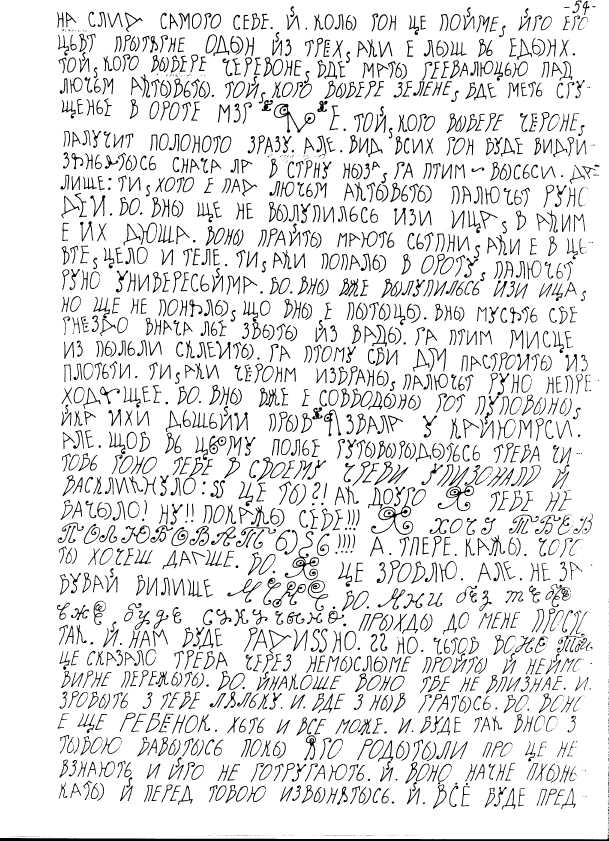 -54-
НА СЛИД САМОГО СЕБЕ. Й. КОЛЫ ГОН ЦЕ ПОЙМЕ, ЙГО ЕГО
ЦЬВТ ПРЫТЯГНЕ ОДЫН ЙЗ ТРЕХ, АКИ Е ЛЫШ ВЬ ЕДЫНХ.
ТОЙ, КОГО ВЫБЕРЕ ЧЕРЕВОНЕ, БДЕ МАТЫ ГЕЕВАЛЮЦЬЮ ПАД
ЛЮЧЬМ АКТЫВЬТЫ. ТОЙ, КОГО ВЫБЕРЕ ЗЕЛЕНЕ, БДЕ МЕТЬ СГУ-
ЩЕНЬЕ В ОРОТЕ МЗГ Е. ТОЙ, КОГО ВЫБЕРЕ ЧЕРОНЕ,
ПАЛУЧИТ ПОЛОНОТО ЗРАЗУ. АЛЕ. ВИД ВСИХ ГОН БУДЕ ВИДРИ-
СНАЧА ЛА В СТРНУ НЫЗА, ГА ПТИМ ВЫСЬСИ.
ЛИЩЕ: ТИ, ХОТО Е ПАД ЛЮЧЬМ АКТЫВЬТЫ ПАЛЮЧЬТ РУНО
ДЕИ. БО. ВНЫ ЩЕ НЕ ВЫЛУПИЛЬСЬ ИЗИ ИЦА, В АКИМ
Е ИХ ДЮША. ВОНЫ ПРАЙТЫ МАЮТЬ СЬТПНИ, АКИ Е В ЦЬ-
ВТЕ, ЦЕЛО И ТЕЛЕ. ТИ, АКИ ПОПАЛЫ В ОРОТУ, ПАЛЮЧЬТ
РУНО УНИВЕРЕСЬЙМА. БО. ВНЫ ВЖЕ ВЫЛУПИЛЬСЬ ИЗИ ИЦА,
НО ЩЕ НЕ ПОНЯЛЫ, ЩО ВНЫ Е ПЫТЫЦЫ. ВНЫ МУСЯТЬ СВЕ
ГНЕЗДО ВНАЧА ЛЬЕ ЗВЫТЫ ЙЗ ВАДЫ. ГА ПТИМ МИСЦЕ
ИЗ ПЫЛЬЛИ СКЛЕИТЫ. ГА ПТОМУ СВИ ДМ ПАСТРОИТЫ ИЗ
ПЛОТЬТИ. ТИ, АКИ ЧЕРОНМ ИЗБРАНЫ, ПАЛЮЧЬТ РУНО НЕПРЕ-
ХОДЯЩЕЕ. БО. ВНЫ ВЖЕ Е СОВБОДЫНЫ ГОТ ПУПОВЫНЫ,
ЙКА ИХИ ДЬШЬЙИ ПРЫВ ЯЗВАЛА У КАЙЮМРСИ.
АЛЕ. ЩОБ ВЬ ЦЬОМУ ПОЛЬЕ ГУТЫВЫРЫДЫТЬСЬ ТРЕБА ЧИ-
ТОБЬ ГОНО ТЕБЕ В СВОЕМУ ЧРЕВИ УПИЗОНАЛО Й
ВАСКЛИКНУЛО: SS ЦЕ ТЫ?! АК ДОУГО Я ТЕБЕ НЕ
БАЧЫЛО! НУ!! ПОКАЖЫ СЕБЕ!!! Я ХОЧУ ТВЕБ
ПОЛЮБОВАТЬ !!!! А. ТПЕРЕ. КАЖЫ. ЧОГО
ТЫ ХОЧЕШ ДАГШЕ. БО. Я ЦЕ ЗРОБЛЮ. АЛЕ. НЕ ЗА-
БУВАЙ ВИЛИЩЕ БО. МНИ БЕЗ ТЕБЕ
ВЖЕ, БУДЕ СУКУЧЬНО. ПРЫХДЫ ДО МЕНЕ ПРОСТО
ТАК. Й. НАМ БУДЕ РАДИSSНО. SS НО. ЧЬТОБ ВОНО
ЦЕ СКАЗАЛО ТРЕБА ЧЕРЕЗ НЕМЫСЛЫМЕ ПРОЙТЫ Й НЕЙМО-
ВИРНЕ ПЕРЕЖЫТЫ. БО. ЙНАКОШЕ ВОНО ТБЕ НЕ ВПИЗНАЕ. И.
ЗРОБЫТЬ З ТЕБЕ ЛЯЛЬКУ. И. БДЕ З НЫВ ГРАТЫСЬ. БО. ВОНО
Е ЩЕ РЕБЕНОК. ХЬТЬ И ВСЕ МОЖЕ. И. БУДЕ ТАК ВНОО З
ТЫБОЮ БАВЫТЫСЬ ПОКЫ ЯГО РОДЫТЫЛИ ПРО ЦЕ НЕ
ВЗНАЮТЬ И ЙГО НЕ ГОТРУГАЮТЬ. Й. ВОНО НАЧНЕ ПХЫНЬ-
КАТЫ Й ПЕРЕД ТОБОЮ ИЗВЫНЯТЫСЬ. Й. ВСЁ БУДЕ ПРЕД-